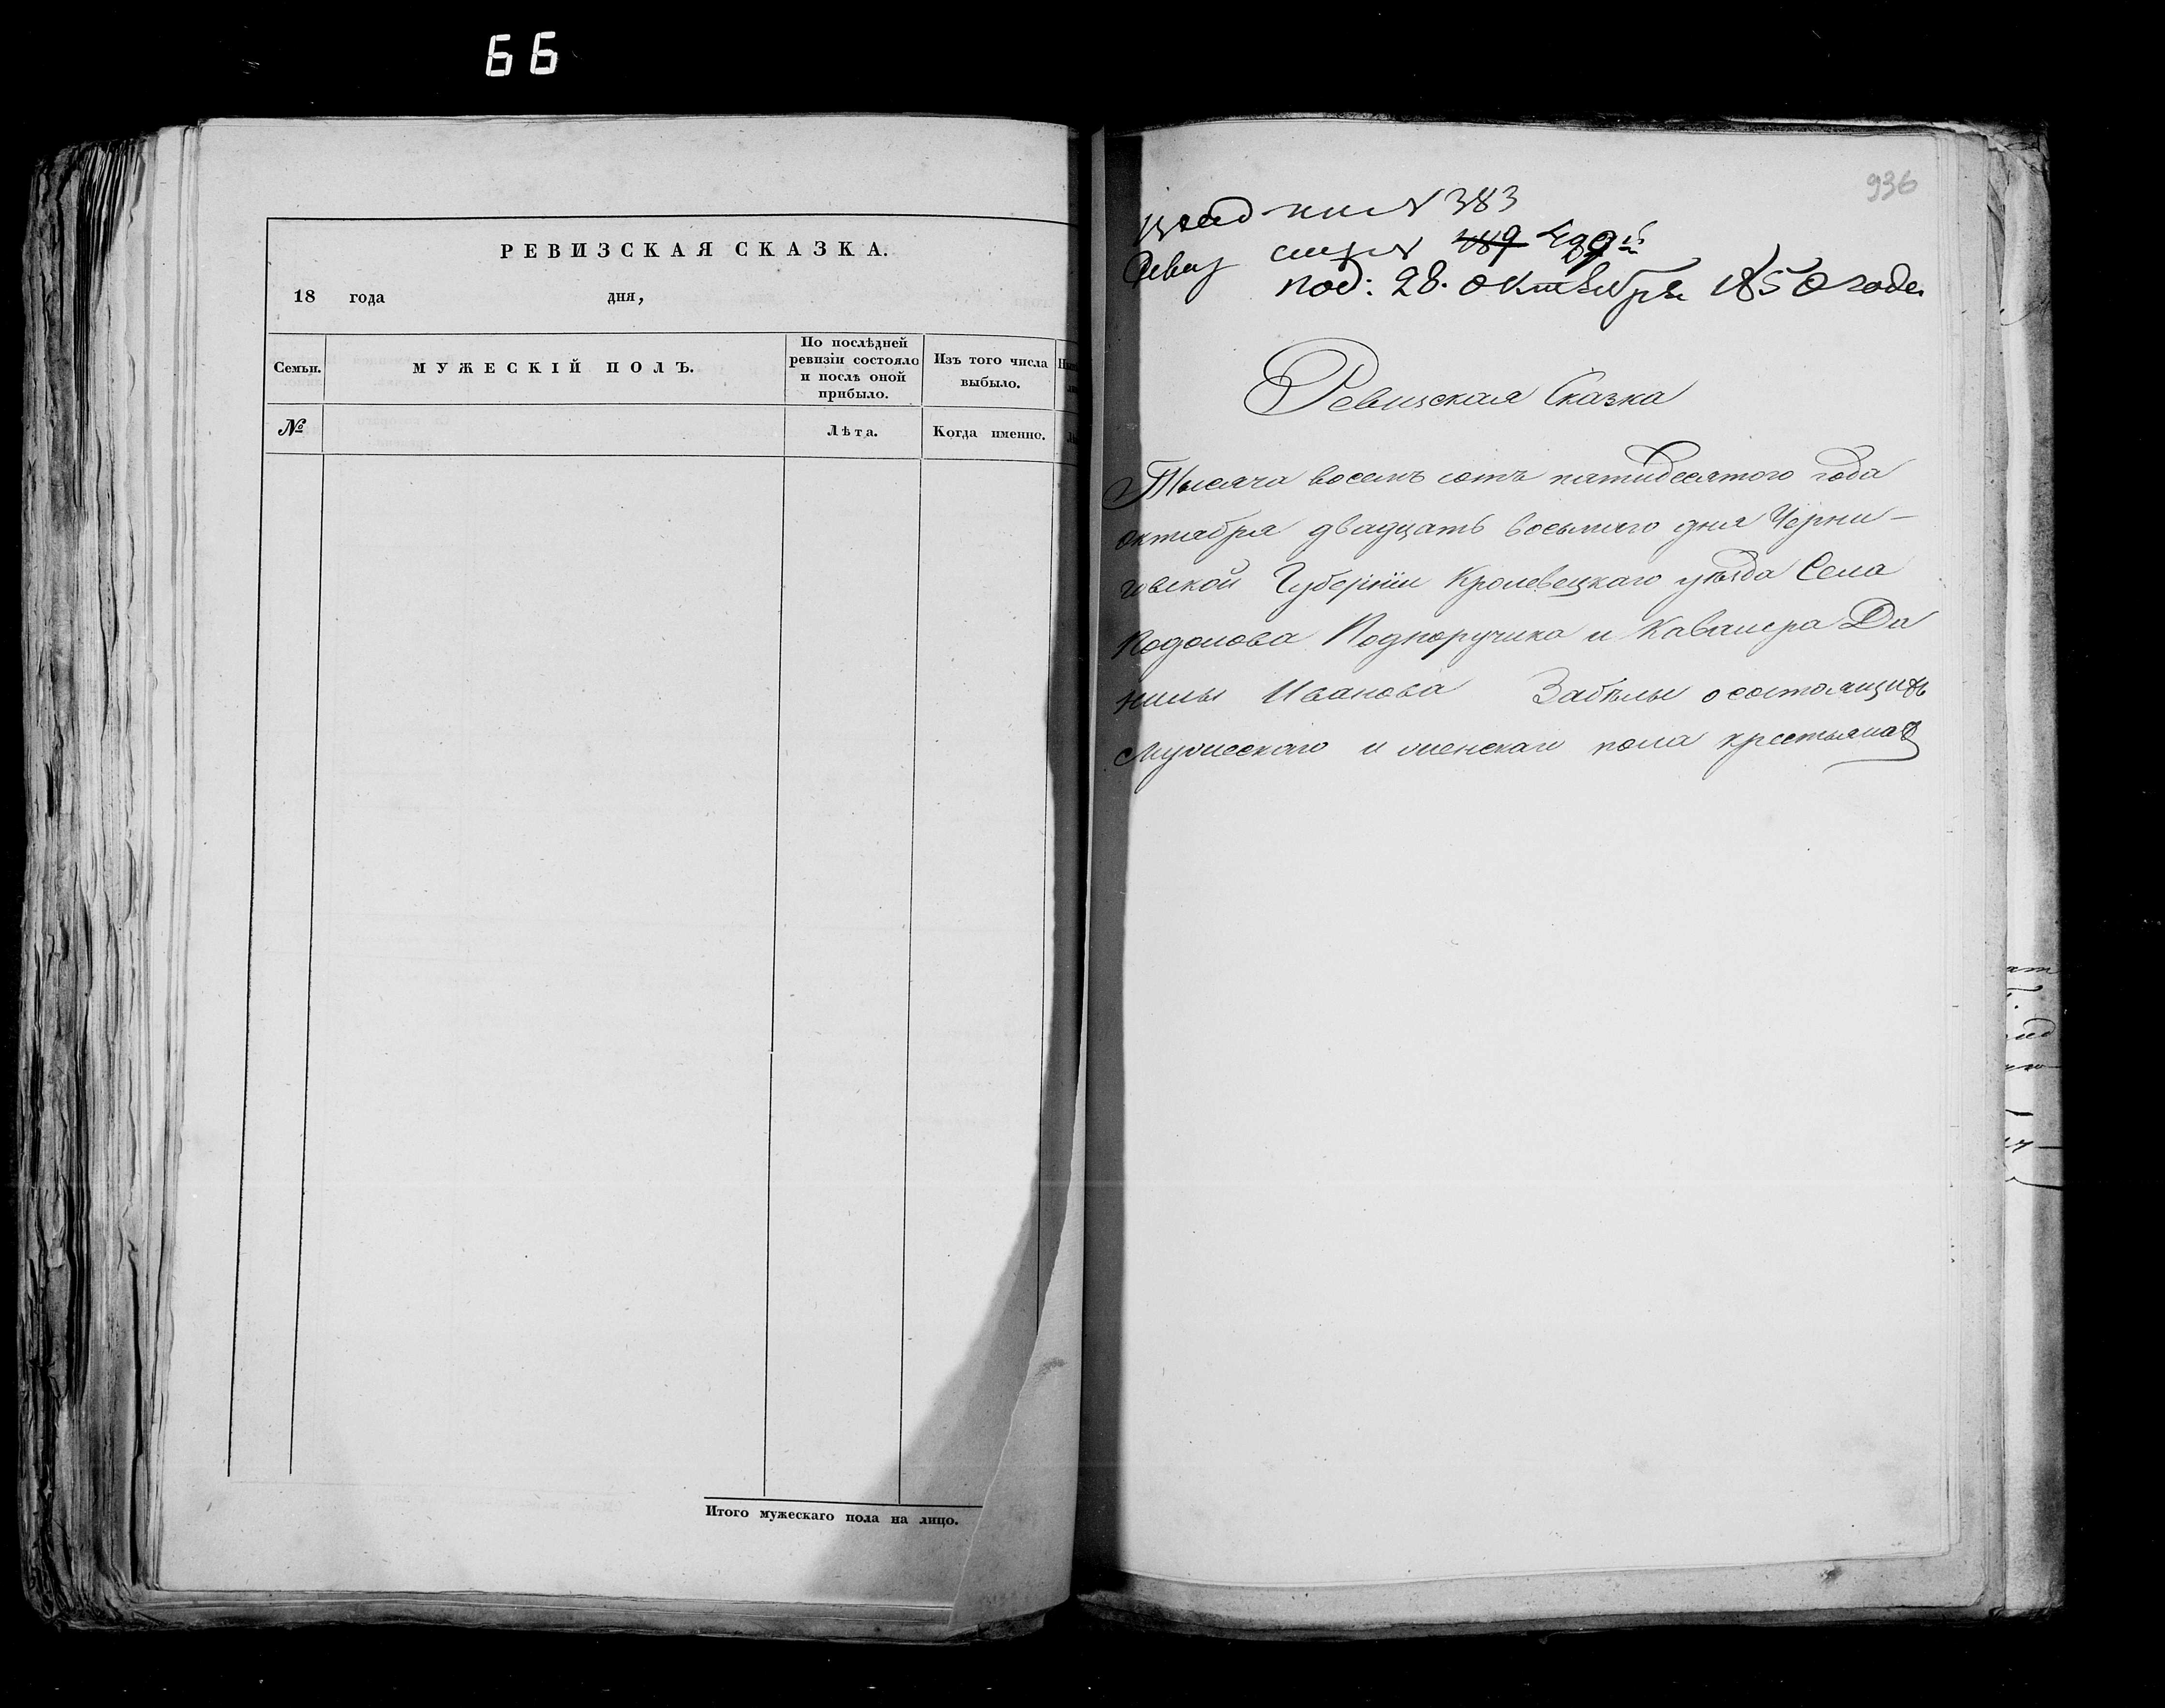 66
РЕВИЗСКАЯ СКАЗКА.
18 года дня,
Семьи.
МУЖЕСКІЙ ПОЛЪ.
По послѣдней
ревизіи состояло
и послѣ оной
прибыло.
Изъ того числа
выбыло.
№
Лѣта.
Когда именно.
Итого мужескаго пола на лицо.
936
№ 383
Ревиз № 489
под: 28. октября 1850 года
Ревизская Сказка
Тысяча восемъ сотъ пятидесятого года
октября двадцать восьмаго дня Черни-
говской Губерніи Кролевецкаго уѣзда Села
Подолова Подпоручика и Кавалера Да
нилы Иванова Забѣлы о состоящихъ
Мужескаго и женскаго пола крестьянах